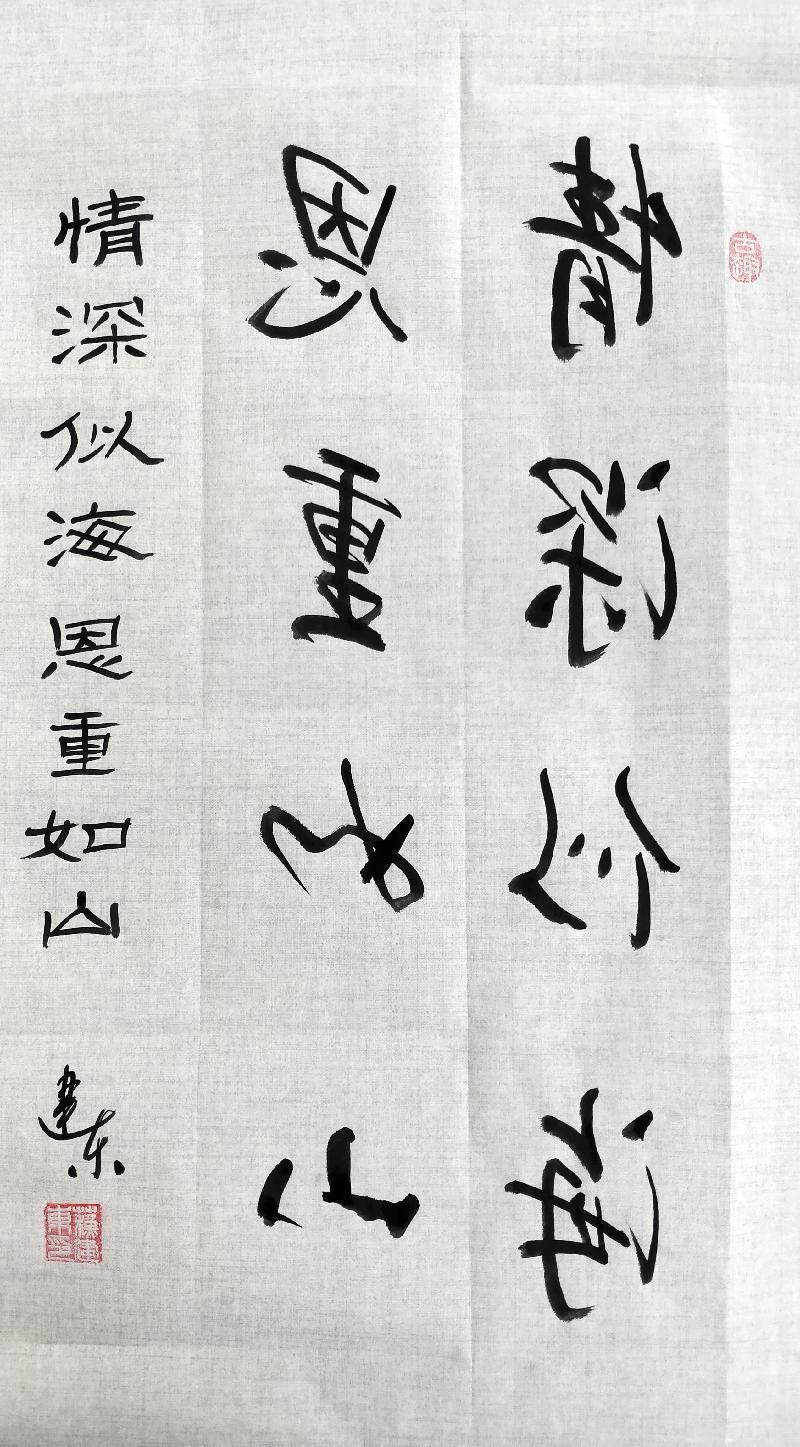 情深似海
恩重如山
情深似海恩重如山
建东
蘇建東印